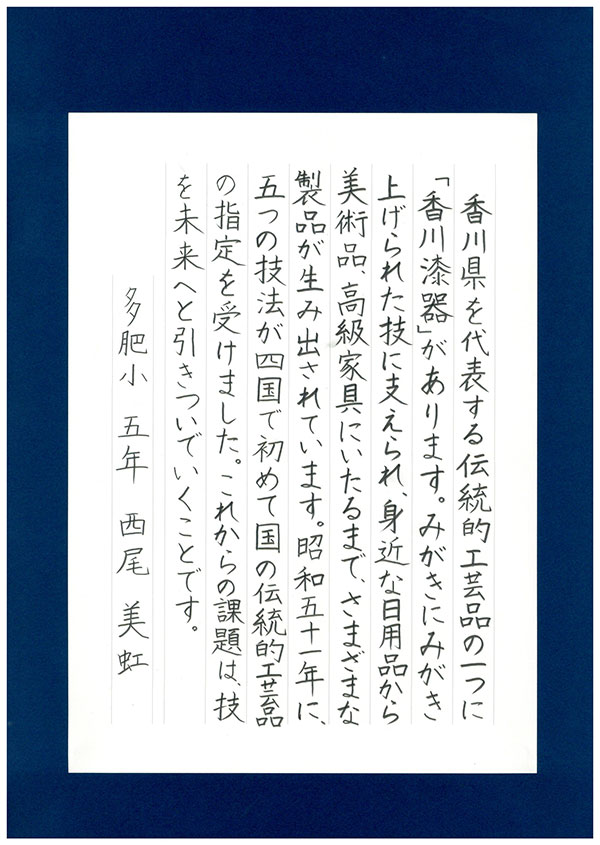 香川県を代表する伝統的工芸品の一つに
「香川漆器」があります。みがきにみがき
上げられた技に支えられ、身近な日用品から
美術品、高級家具にいたるまで、さまざまな
製品が生み出されています。昭和五十一年に、
五つの技法が四国で初めて国の伝統的工芸品
の指定を受けました。これからの課題は、技
を未来へと引きついでいくことです。
多肥小 五年 西尾 美虹